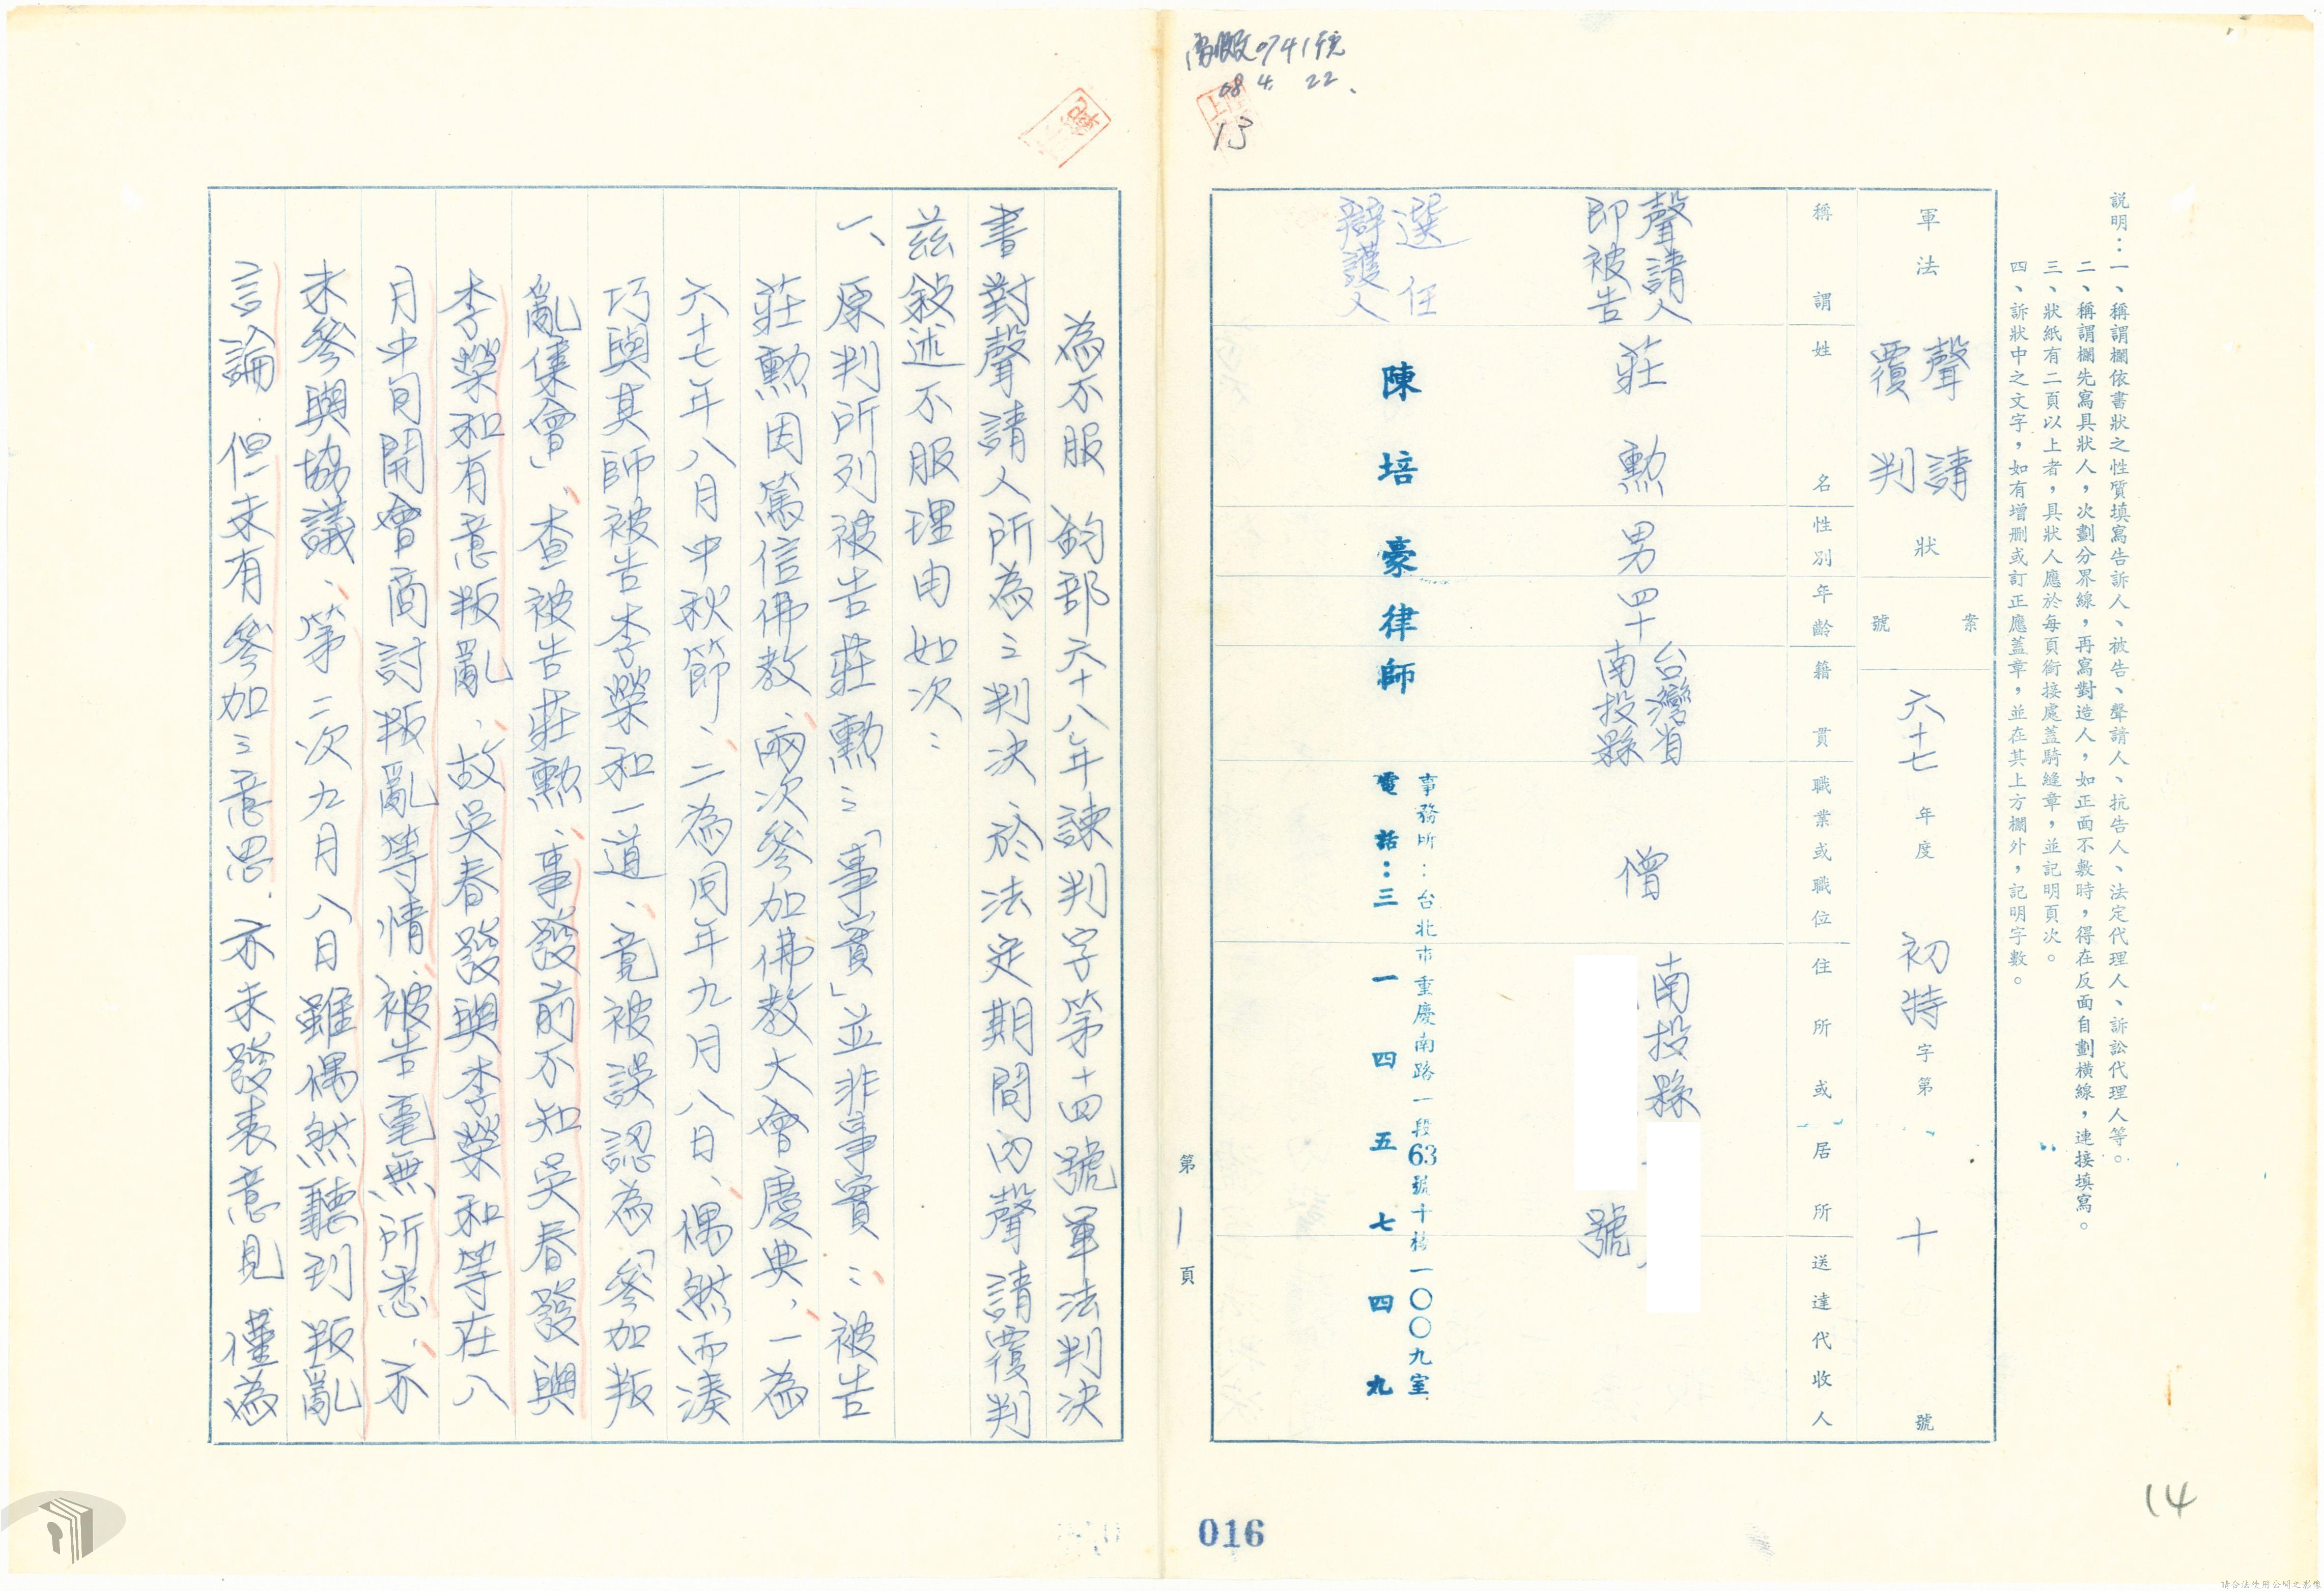 說明：一、稱謂欄依書狀之性質填寫告訴人、被告、聲請人、抗告人、法定代理人、訴訟代理人等。
二、稱謂欄先寫具狀人，次劃分界線，再寫對造人，如正面不敷時，得在反面自劃橫線，連接填寫。
三、狀紙有二頁以上者，具狀人應於每頁銜接處蓋騎縫章，並記明頁次。
四、訴狀中之文字，如有增刪或訂正應蓋章，並在其上方欄外，記明字數。
軍法 聲請覆判 狀
案號 六十七 年度 初特 字第 十 號
稱謂 姓名 性別 年齡 籍貫 職業或職位 住所或居所 送達代收人
聲請人即被告 莊勳 男 四十 台灣省南投縣 僧 南投縣 號
選任辯護人 陳培豪律師
事務所：台北市重慶南路一段63號十樓一〇〇九室
電話：三一四五七四九
0741號
68 4. 22.
13
第 1 頁
為不服 鈞部六十八年諫判字第十四號軍法判決
書對聲請人所為之判決於法定期間內聲請覆判
茲敍述不服理由如次：
一、原判所列被告莊勳之「事實」並非事實：被告
莊勳因篤信佛教、兩次參加佛教大會慶典，一為
六十七年八月中秋節、二為同年九月八日、偶然而湊
巧與其師被告李榮和一道、竟被誤認為「參加叛
亂集會」、查被告莊勳、事發前不知吳春發與
李榮和有意叛亂、故吳春發與李榮和等在八
月中旬開會商討叛亂等情、被告毫無所悉、亦
未參與協議、第二次九月八日雖偶然聽到叛亂
言論.但未有參加之意思.亦未發表意見僅為
016
14
請合法使用公開之影像